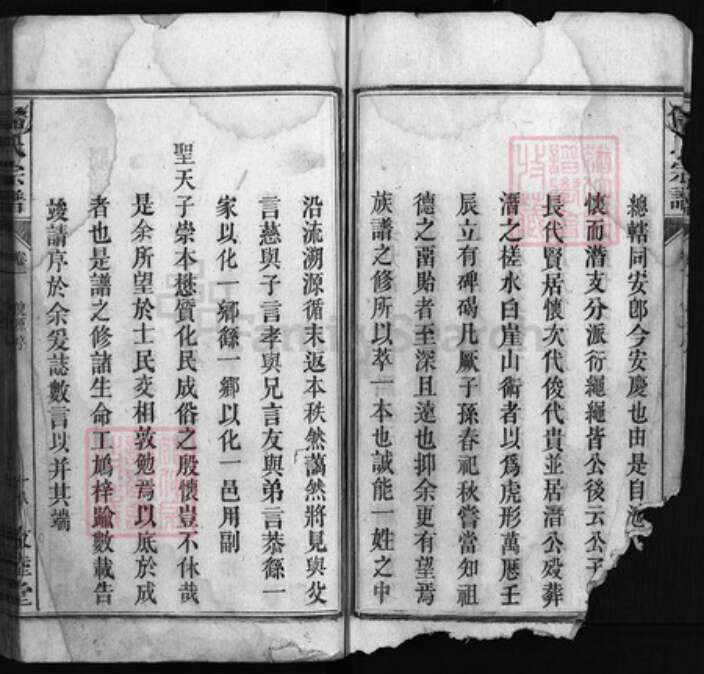 總轄同安郎今安慶也由是自池
懷而潛支分派衍繩繩皆公後云公子
長代賢居懷次代俊代貴並居潛公歿葬
潛之槎水白崖山術者以為虎形萬厯壬
辰立有碑碣凡厥子孫春祀秋嘗當知祖
德之啚貽者至深且遠也抑余更有望焉
族譜之修所以萃一本也誠能一姓之中
沿流溯源循末返本秩然藹然將見與父
言慈與子言孝與兄言友與弟言恭繇一
家以化一鄉繇一鄉以化一邑用副
聖天子崇本懋質化民成俗之殷懷豈不休哉
是余所望於士民交相敦勉焉以底於成
者也是譜之修諸生命工鳩梓踰數載告
竣請序於余爰誌數言以弁其端
氏宗譜
卷
宗譜
Family Search